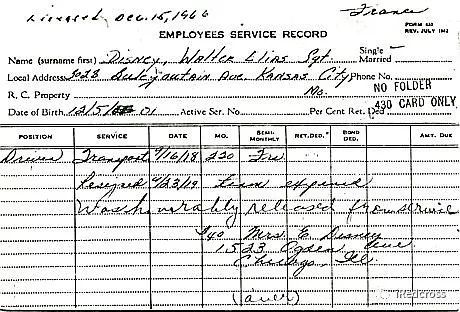 Dec. 15, 1966
France
FORM 430
REV. JULY 1942
EMPLOYEES SERVICE RECORD
Name (surname first) Disney, Walter Elias Sgt Single Married
Local Address Ave. Kansas City Phone No.
R. C. Property Mo. NO FOLDER
Date of Birth 12/5/ 01 Active Ser. No. Per Cent Ret. Ded 430 CARD ONLY
POSITION SERVICE DATE MO. SEMI-MONTHLY RET. DED. BOND DED. AMT. DUE
Driver Transport 9/16/18 Frs
Resigned 4/23/19 Term expired
Was honorably released from service
$40 Mrs. E. Disney
1523 Ogden Ave
Chicago, Ill.
(over)
iRedcross